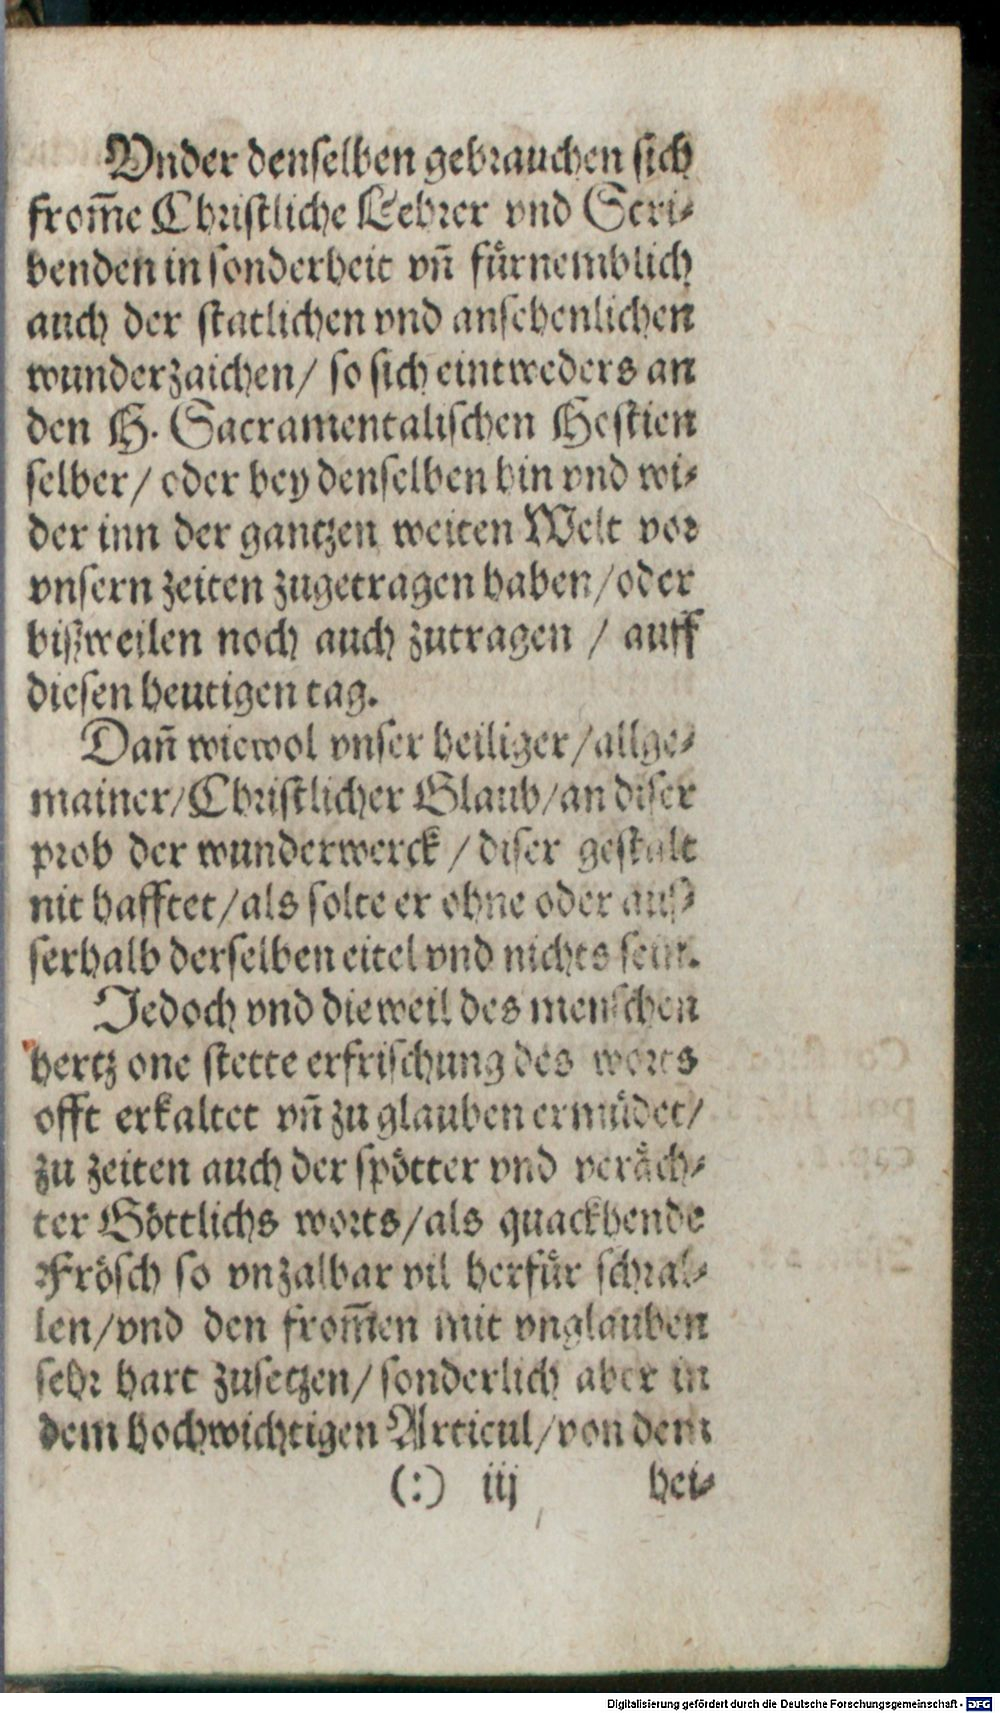 Vnder denselben gebrauchen sich
from̃e Christliche Lehrer vnd Scri-
benden in sonderheit vñ fürnemblich
auch der statlichen vnd ansehenlichen
wunderzaichen/ so sich eintweders an
den H. Sacramentalischen Hestien
selber/ oder bey denselben hin vnd wi-
der inn der gantzen weiten Welt vor
vnsern zeiten zugetragen haben/oder
bißweilen noch auch zutragen / auff
diesen heutigen tag.
Dañ wiewol vnser heiliger/allge-
mainer/Christlicher Glaub/an diser
prob der wunderwerck / diser gestalt
nit hafftet/als solte er ohne oder aus-
serhalb derselben eitel vnd nichts sein.
Jedoch vnd dieweil des menschen
hertz one stette erfrischung des worts
offt erkaltet vñ zu glauben ermüdet/
zu zeiten auch der spötter vnd veräch-
ter Göttlichs worts/als quackhende
Frösch so vnzalbar vil herfür schral-
len/vnd den from̃en mit vnglauben
sehr hart zusetzen/ sonderlich aber in
dem hochwichtigen Articul/von dem
(:) iij hei-
Digitalisierung gefördert durch die Deutsche Forschungsgemeinschaft - DFG